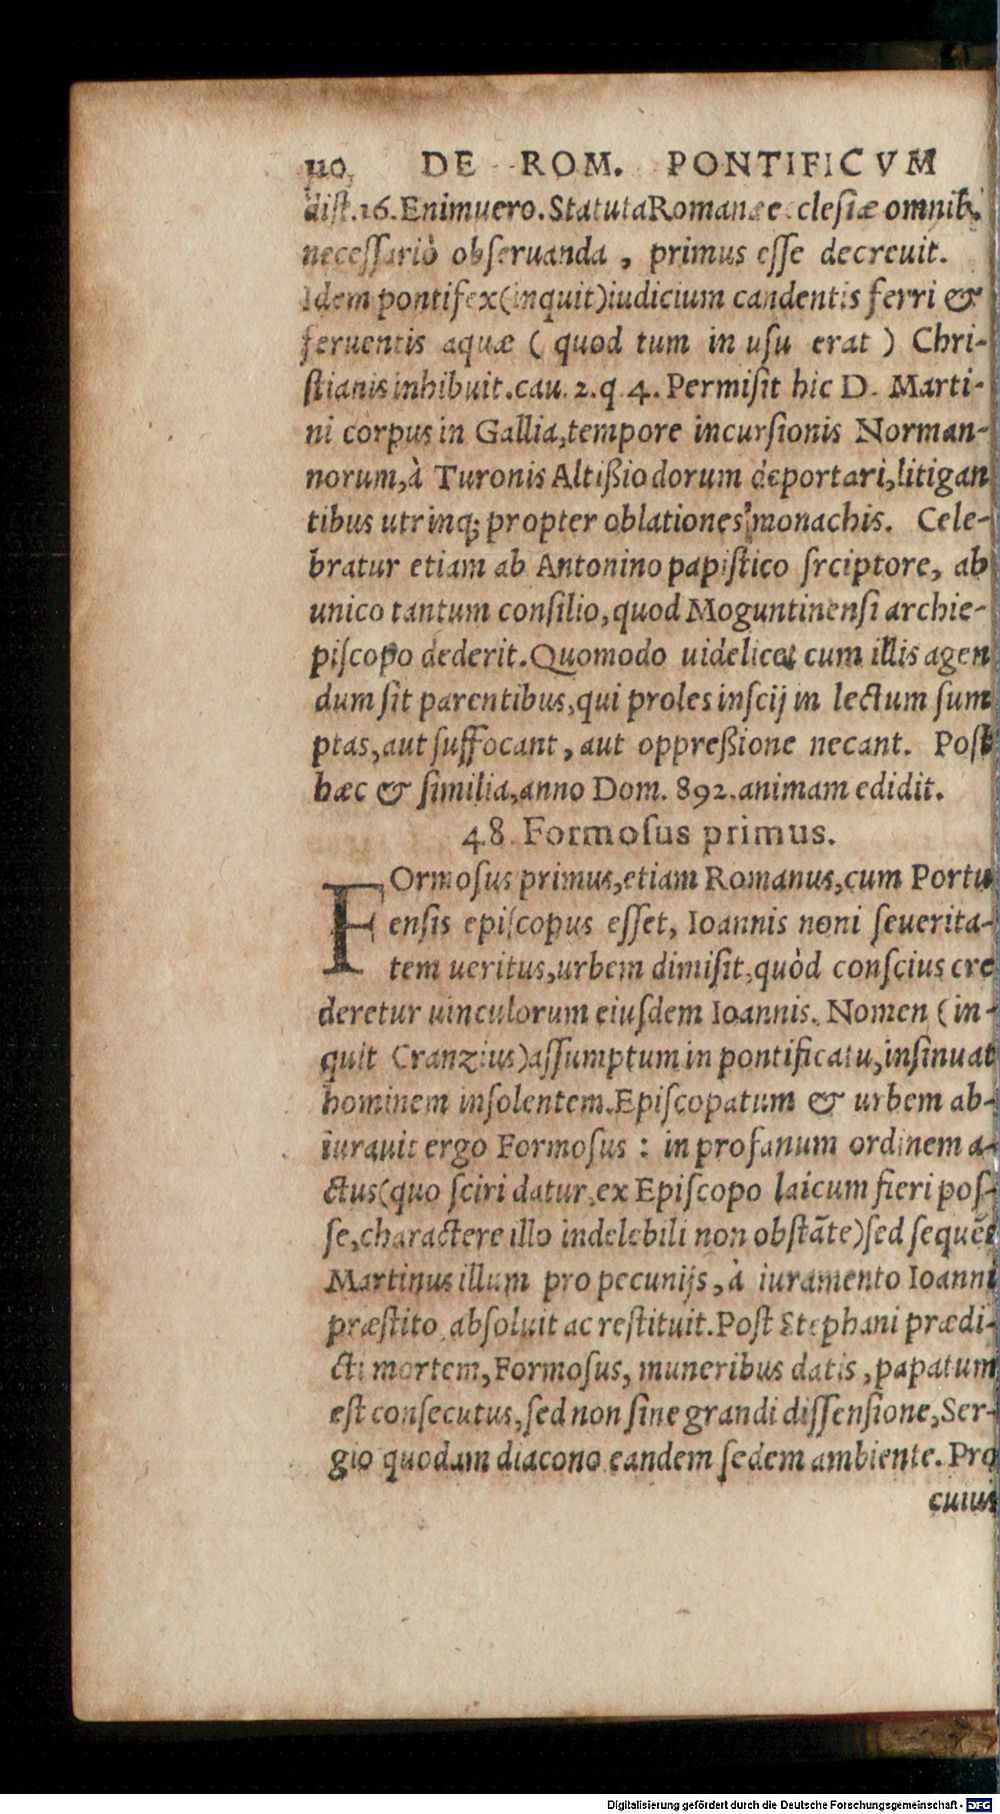 110 DE ROM. PONTIFICVM
dist.16.Enimuero.StatutaRomanæ ecclesiæ omnib.
necessariò obseruanda , primus esse decreuit.
Idem pontifex(inquit)iudicium candentis ferri &
feruentis aquæ ( quod tum in usu erat ) Chri-
stianis inhibuit.cau.2.q.4.Permisit hic D. Marti-
ni corpus in Gallia,tempore incursionis Norman-
norum,à Turonis Altißiodorum deportari,litigan
tibus utrinq; propter oblationes monachis. Cele-
bratur etiam ab Antonino papistico srciptore, ab
unico tantum consilio,quod Moguntinensi archie-
piscopo dederit.Quomodo uidelicet cum illis agen
dum sit parentibus,qui proles inscij in lectum sum
ptas,aut suffocant, aut oppreßione necant. Post
hæc & similia,anno Dom. 892.animam edidit.
48 Formosus primus.
FOrmosus primus,etiam Romanus,cum Portu
ensis episcopus esset, Ioannis noni seuerita-
tem ueritus,urbem dimisit,quòd conscius cre
deretur uinculorum eiusdem Ioannis. Nomen (in-
quit Cranzius)assumptum in pontificatu,insinuat
hominem insolentem.Episcopatum & urbem ab-
iurauit ergo Formosus : in profanum ordinem a-
ctus(quo sciri datur,ex Episcopo laicum fieri pos-
se,charactere illo indelebili non obstāte)sed sequēs
Martinus illum pro pecunijs,à iuramento Ioanni
præstito,absoluit ac restituit.Post Stephani prædi-
cti mortem,Formosus, muneribus datis ,papatum
est consecutus,sed non sine grandi dissensione,Ser-
gio quodam diacono eandem sedem ambiente. Pro
cuius
Digitalisierung gefördert durch die Deutsche Forschungsgemeinschaft - DFG